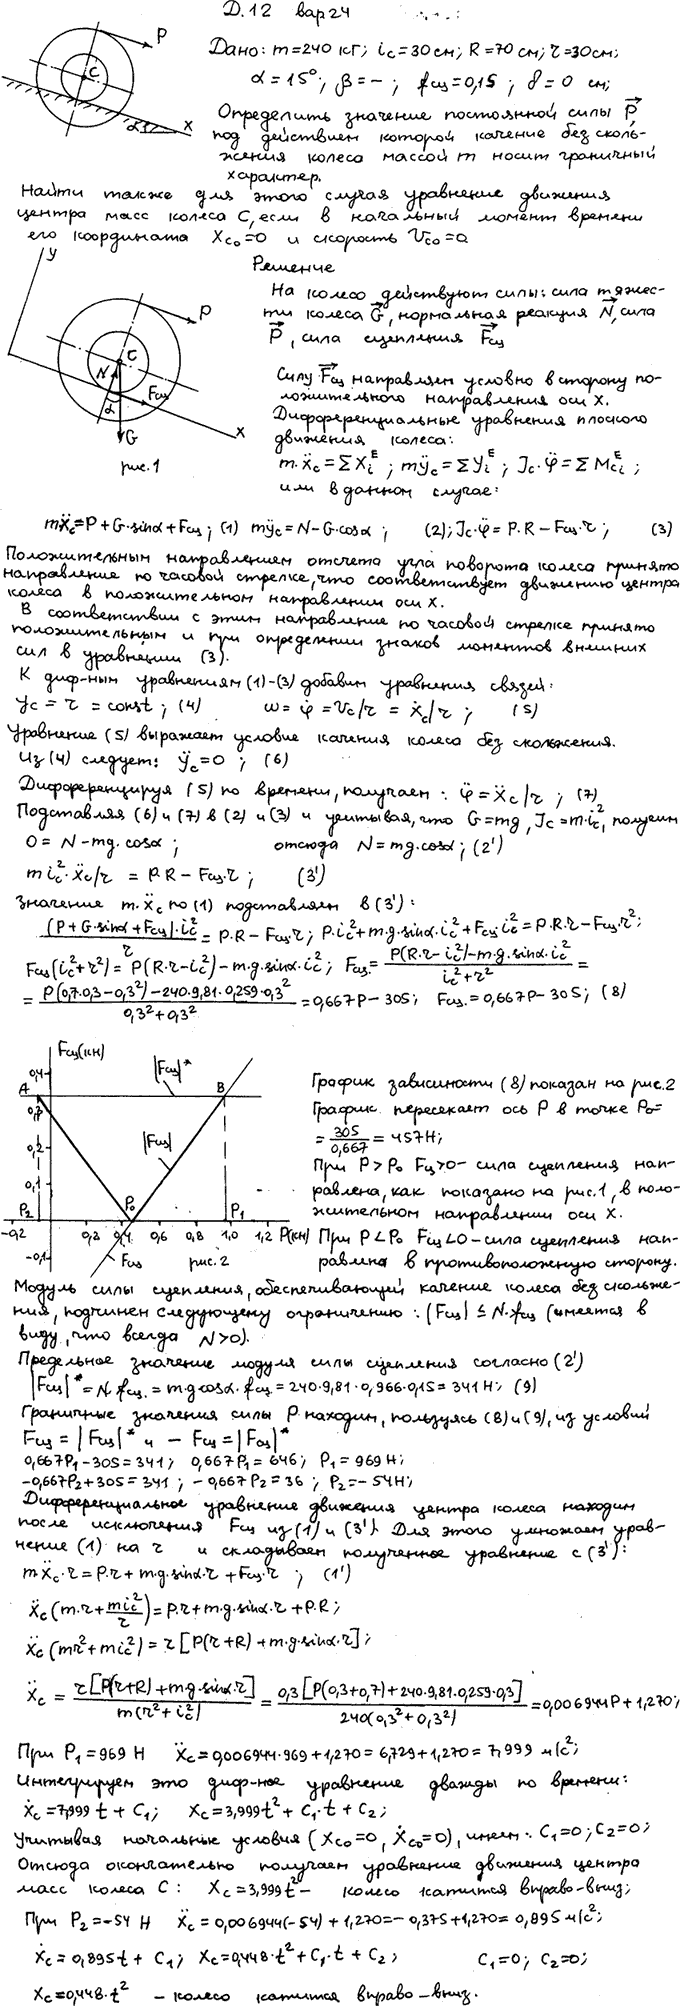 Д.12 вар24
Дано: m=240 кг; i_c=30см; R=70 см; r=30см;
α=15°; β=– ; f_сц=0,15 ; δ=0 см;
P
C
α
x
Определить значение постоянной силы P,
под действием которой качение без сколь-
жения колеса массой m носит граничный
характер.
Найти также для этого случая уравнение движения
центра масс колеса C, если в начальный момент времени
его координата X_C0=0 и скорость V_C0=0
y
P
C
N
F_сц
α
G
x
рис.1
Решение
На колесо действуют силы: сила тяжес-
ти колеса G, нормальная реакция N, сила
P, сила сцепления F_сц
Силу F_сц направляем условно в сторону по-
ложительного направления оси X.
Дифференциальные уравнения плоского
движения колеса:
m·ẍ_c=ΣX_i^E; mÿ_c=ΣY_i^E; J_c·φ̈=ΣM_ci^E;
или в данном случае:
mẍ_c=P+G·sinα+F_сц; (1) mÿ_c=N-G·cosα; (2); J_c·φ̈=P·R-F_сц·r; (3)
Положительным направлением отсчета угла поворота колеса принято
направление по часовой стрелке, что соответствует движению центра
колеса в положительном направлении оси X.
В соответствии с этим направление по часовой стрелке принято
положительным и при определении знаков моментов внешних
сил в уравнении (3).
К диф-ным уравнениям (1)-(3) добавим уравнения связей:
y_c=r=const; (4) ω=φ̇=V_c/r=ẋ_c/r; (5)
Уравнение (5) выражает условие качения колеса без скольжения.
Из (4) следует: ÿ_c=0 ; (6)
Дифференцируя (5) по времени, получаем: φ̈=ẍ_c/r; (7)
Подставляя (6) и (7) в (2) и (3) и учитывая, что G=mg, J_c=m·i_c², получим
0=N-mg·cosα; отсюда N=mg·cosα; (2')
m i_c²·ẍ_c/r = P·R-F_сц·r; (3')
Значение m·ẍ_c по (1) подставляем в (3'):
(P+G·sinα+F_сц)·i_c²/r = P·R-F_сц·r; P·i_c²+m·g·sinα·i_c²+F_сц·i_c²=P·R·r-F_сц·r²;
F_сц(i_c²+r²)=P(R·r-i_c²)-m·g·sinα·i_c²; F_сц.=(P(R·r-i_c²)-m·g·sinα·i_c²)/(i_c²+r²)=
=(P(0,7·0,3-0,3²)-240·9,81·0,259·0,3²)/(0,3²+0,3²)=0,667P-305; F_сц.=0,667P-305; (8)
F_сц(кн)
0,4
A
|F_сц|*
B
0,3
0,2
|F_сц|
0,1
P₂
P₀
P₁
-0,2 0,2 0,4 0,6 0,8 1,0 1,2 P(кн)
-0,1
F_сц
рис.2
График зависимости (8) показан на рис.2
График пересекает ось P в точке P₀=
=305/0,667=457Н;
При P>P₀ F_сц>0- сила сцепления нап-
равлена, как показано на рис.1, в поло-
жительном направлении оси X.
При P<P₀ F_сц<0-сила сцепления нап-
равлена в противоположную сторону.
Модуль силы сцепления, обеспечивающей качение колеса без скольже-
ния, подчинен следующему ограничению: |F_сц|≤N·f_сц (имеется в
виду, что всегда N>0).
Предельное значение модуля силы сцепления согласно (2')
|F_сц|*=N·f_сц.=m·g·cosα·f_сц.=240·9,81·0,966·0,15=341Н; (9)
Граничные значения силы P находим, пользуясь (8) и (9), из условий
F_сц=|F_сц|* и -F_сц=|F_сц|*
0,667P₁-305=341; 0,667P₁=646; P₁=969Н;
-0,667P₂+305=341; -0,667P₂=36; P₂=-54Н;
Дифференциальное уравнение движения центра колеса находим
после исключения F_сц из (1) и (3'). Для этого умножаем урав-
нение (1) на r и складываем полученное уравнение с (3'):
mẍ_c·r=P·r+m·g·sinα·r+F_сц·r; (1')
ẍ_c(m·r+mi_c²/r)=P·r+m·g·sinα·r+P·R;
ẍ_c(mr²+mi_c²)=r[P(r+R)+m·g·sinα·r];
ẍ_c=r[P(r+R)+m·g·sinα·r]/(m(r²+i_c²))=0,3[P(0,3+0,7)+240·9,81·0,259·0,3]/(240(0,3²+0,3²))=0,006944P+1,270;
При P₁=969 Н ẍ_c=0,006944·969+1,270=6,729+1,270=7,999 м/с²;
Интегрируем это диф-ное уравнение дважды по времени:
ẋ_c=7,999t+C₁; x_c=3,999t²+C₁·t+C₂;
Учитывая начальные условия (X_C0=0, Ẋ_C0=0), имеем: C₁=0; C₂=0;
Отсюда окончательно получаем уравнение движения центра
масс колеса C: X_c=3,999t²- колесо катится вправо-вниз;
При P₂=-54 Н ẍ_c=0,006944(-54)+1,270=-0,375+1,270=0,895 м/с²;
ẋ_c=0,895t+C₁; x_c=0,448·t²+C₁·t+C₂; C₁=0; C₂=0;
X_c=0,448·t² - колесо катится вправо-вниз.